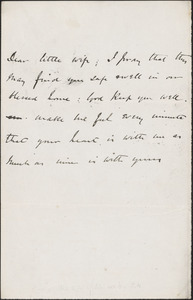 Dear little wife; I pray that this
may find you safe & well in our
blessed home; God keep you well
make me feel every minute
that your heart is with me as
much as mine is with yours